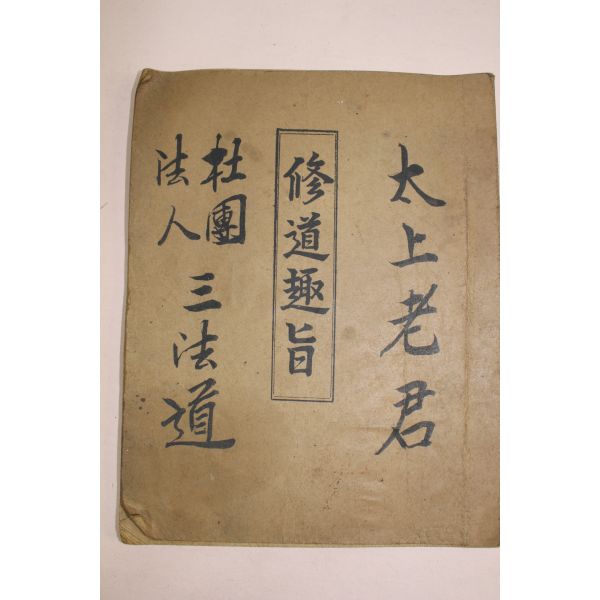 太上老君
修道趣旨
社團
法人
三法道